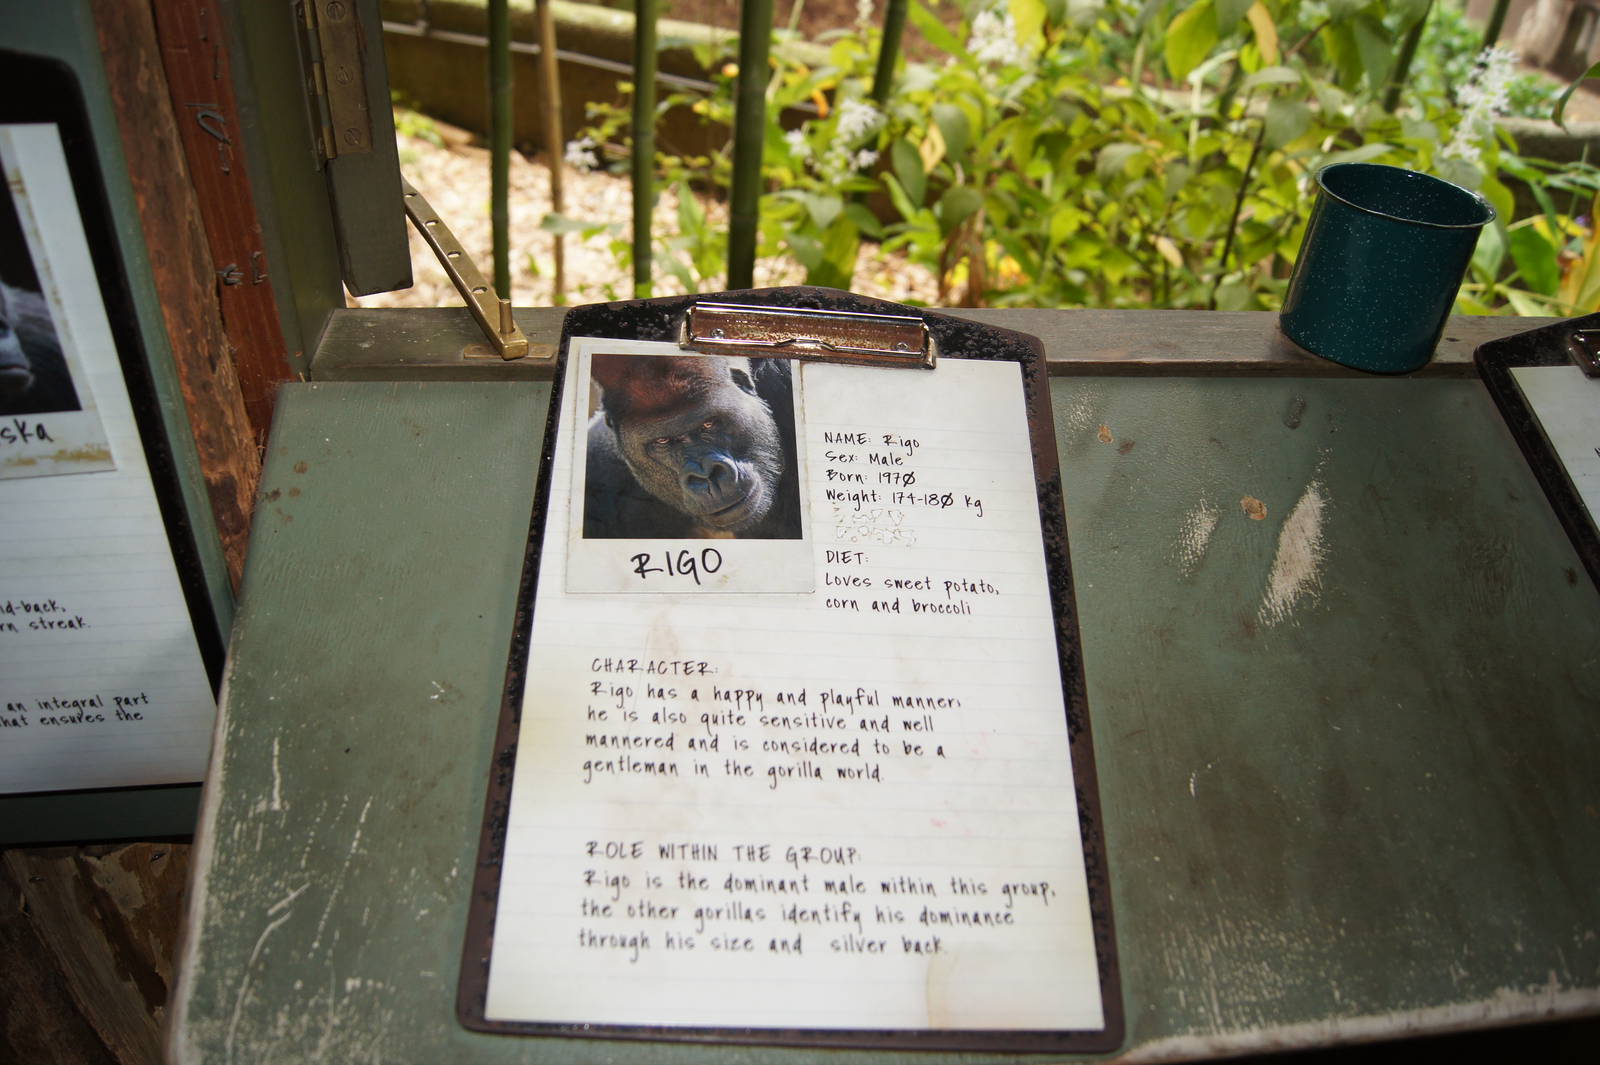 ska
id-back,
rn streak.
an integral part
hat ensures the
RIGO
NAME: Rigo
Sex: Male
Born: 1970
Weight: 174-180 kg
DIET:
Loves sweet potato,
corn and broccoli
CHARACTER:
Rigo has a happy and playful manner,
he is also quite sensitive and well
mannered and is considered to be a
gentleman in the gorilla world.
ROLE WITHIN THE GROUP:
Rigo is the dominant male within this group,
the other gorillas identify his dominance
through his size and silver back.